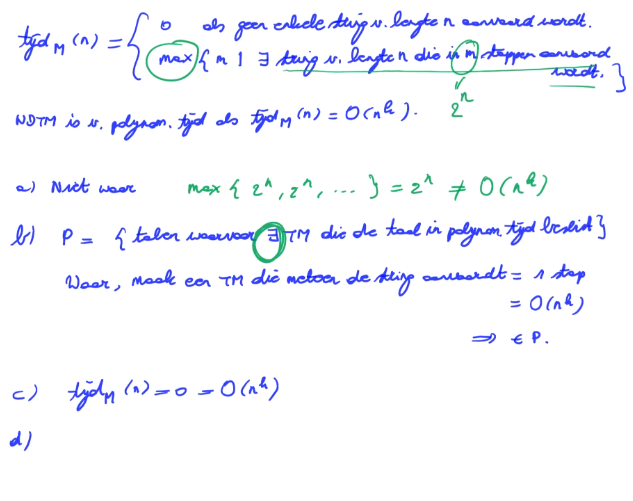 tijd_M (n) = { 0 als geen enkele string v. lengte n aanvaard wordt.
max { m | ∃ string v. lengte n die in m stappen aanvaard wordt. }
2^n
NDTM is v. polynom. tijd als tijd_M (n) = O(n^k).
a) Niet waar max { 2^n, 2^n, ... } = 2^n ≠ O(n^k)
b) P = { talen waarvoor ∃ TM die de taal in polynom. tijd beslist }
Waar, maak een TM die meteen de string aanvaardt = 1 stap
= O(n^k)
⇒ ∈ P.
c) tijd_M (n) = 0 = O(n^k)
d)